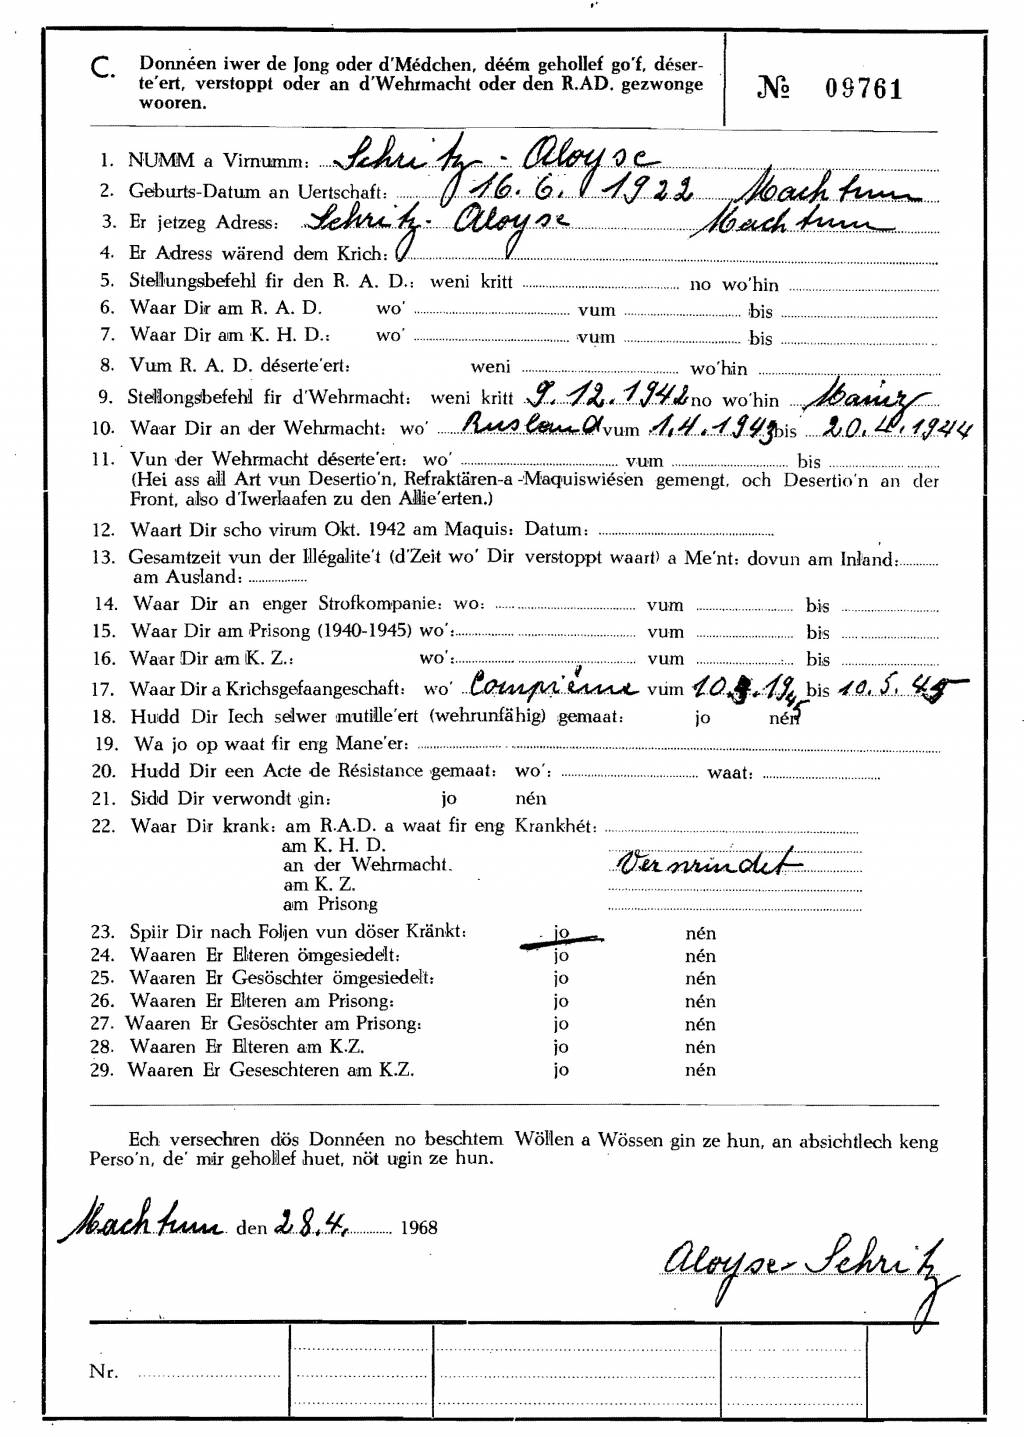 C. Donnéen iwer de Jong oder d'Médchen, déém gehollef go'f, déser-
te'ert, verstoppt oder an d'Wehrmacht oder den R.AD. gezwonge
wooren.
№ 09761
1. NUMM a Virnumm: Schritz - Aloyse
2. Geburts-Datum an Uertschaft: 16. 6. 1922 Machtum
3. Er jetzeg Adress: Schritz - Aloyse Machtum
4. Er Adress wärend dem Krich:
5. Stellungsbefehl fir den R. A. D.: weni kritt no wo'hin
6. Waar Dir am R. A. D. wo' vum bis
7. Waar Dir am K. H. D.: wo' vum bis
8. Vum R. A. D. déserte'ert: weni wo'hin
9. Stellongsbefehl fir d'Wehrmacht: weni kritt 9. 12. 1942 no wo'hin Mainz
10. Waar Dir an der Wehrmacht: wo' Rusland vum 1. 4. 1943 bis 20. 4. 1944
11. Vun der Wehrmacht déserte'ert: wo' vum bis
(Hei ass all Art vun Desertio'n, Refraktären-a-Maquiswiésen gemengt, och Desertio'n an der
Front, also d'Iwerlaafen zu den Allie'erten.)
12. Waart Dir scho virum Okt. 1942 am Maquis: Datum:
13. Gesamtzeit vun der Illégalite't (d'Zeit wo' Dir verstoppt waart) a Me'nt: dovun am Inland:
am Ausland:
14. Waar Dir an enger Strofkompanie: wo: vum bis
15. Waar Dir am Prisong (1940-1945) wo': vum bis
16. Waar Dir am K. Z.: wo': vum bis
17. Waar Dir a Krichsgefaangeschaft: wo' Compriéme vum 10. 3. 1945 bis 10. 5. 45
18. Hudd Dir Iech selwer mutille'ert (wehrunfähig) gemaat: jo nén
19. Wa jo op waat fir eng Mane'er:
20. Hudd Dir een Acte de Résistance gemaat: wo': waat:
21. Sidd Dir verwondt gin: jo nén
22. Waar Dir krank: am R.A.D. a waat fir eng Krankhét:
am K. H. D.
an der Wehrmacht. Verwundet
am K. Z.
am Prisong
23. Spiir Dir nach Foljen vun döser Kränkt: jo nén
24. Waaren Er Elteren ömgesiedelt: jo nén
25. Waaren Er Gesöschter ömgesiedelt: jo nén
26. Waaren Er Elteren am Prisong: jo nén
27. Waaren Er Gesöschter am Prisong: jo nén
28. Waaren Er Elteren am K.Z. jo nén
29. Waaren Er Geseschteren am K.Z. jo nén
Ech versechren dös Donnéen no beschtem Wöllen a Wössen gin ze hun, an absichtlech keng
Perso'n, de' mir gehollef huet, nöt ugin ze hun.
Machtum den 28. 4. 1968
Aloyse - Schritz
Nr.